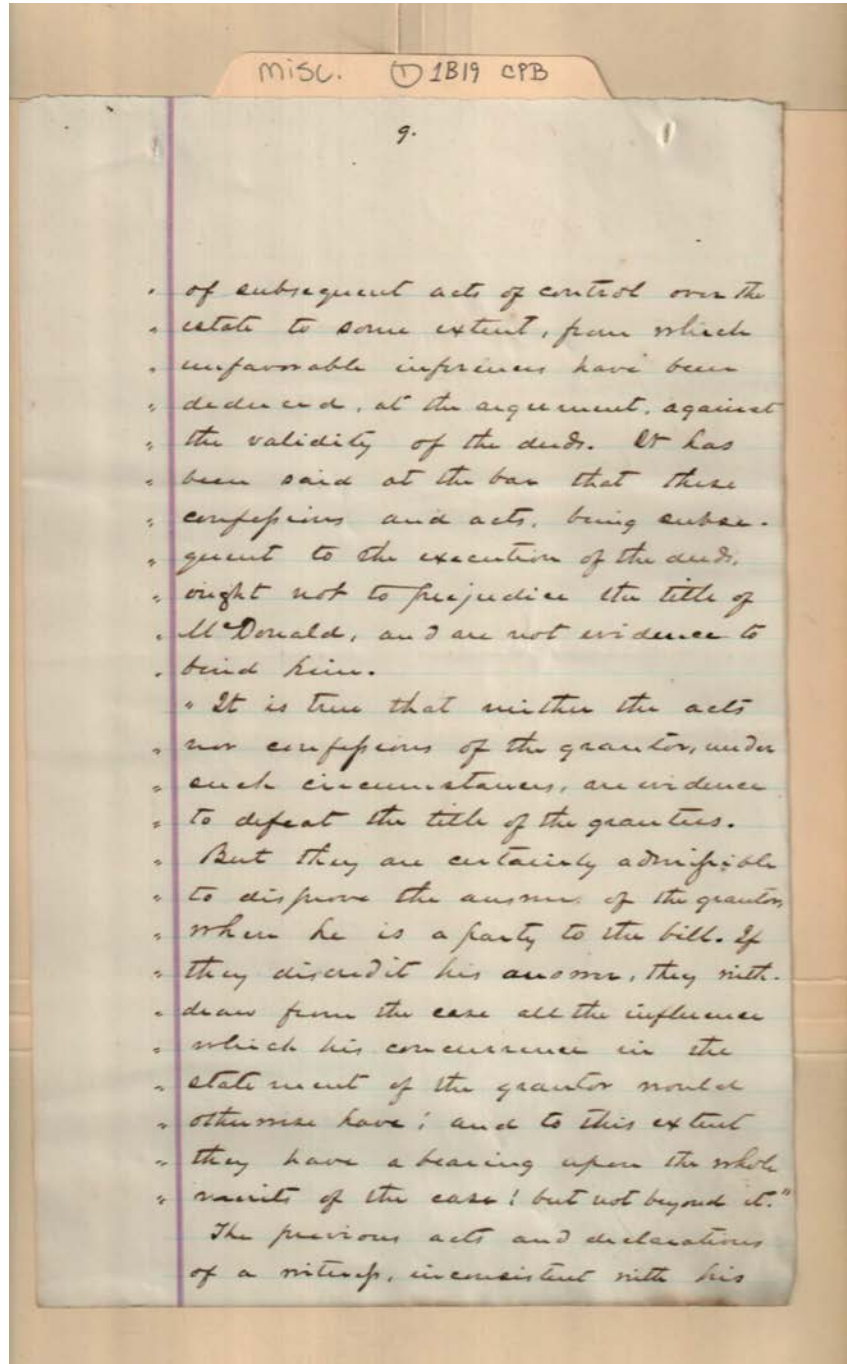 misc. ① 1B19 CPB
9.
" of subsequent acts of control over the
" estate to some extent, from which
" unfavorable inferences have been
" deduced, at the argument, against
" the validity of the deeds. It has
" been said at the bar that these
" confessions and acts, being subse-
" quent to the execution of the deeds,
" ought not to prejudice the title of
" McDonald, and are not evidence to
" bind him.
" It is true that neither the acts
" nor confessions of the grantor, under
" such circumstances, are evidence
" to defeat the title of the grantees.
" But they are certainly admissible
" to disprove the answer of the grantor,
" where he is a party to the bill. If
" they discredit his answer, they with-
" draw from the case all the influence
" which his concurrence in the
" statement of the grantor would
" otherwise have; and to this extent
" they have a bearing upon the whole
" merits of the case; but not beyond it."
The previous acts and declarations
of a witness, inconsistent with his